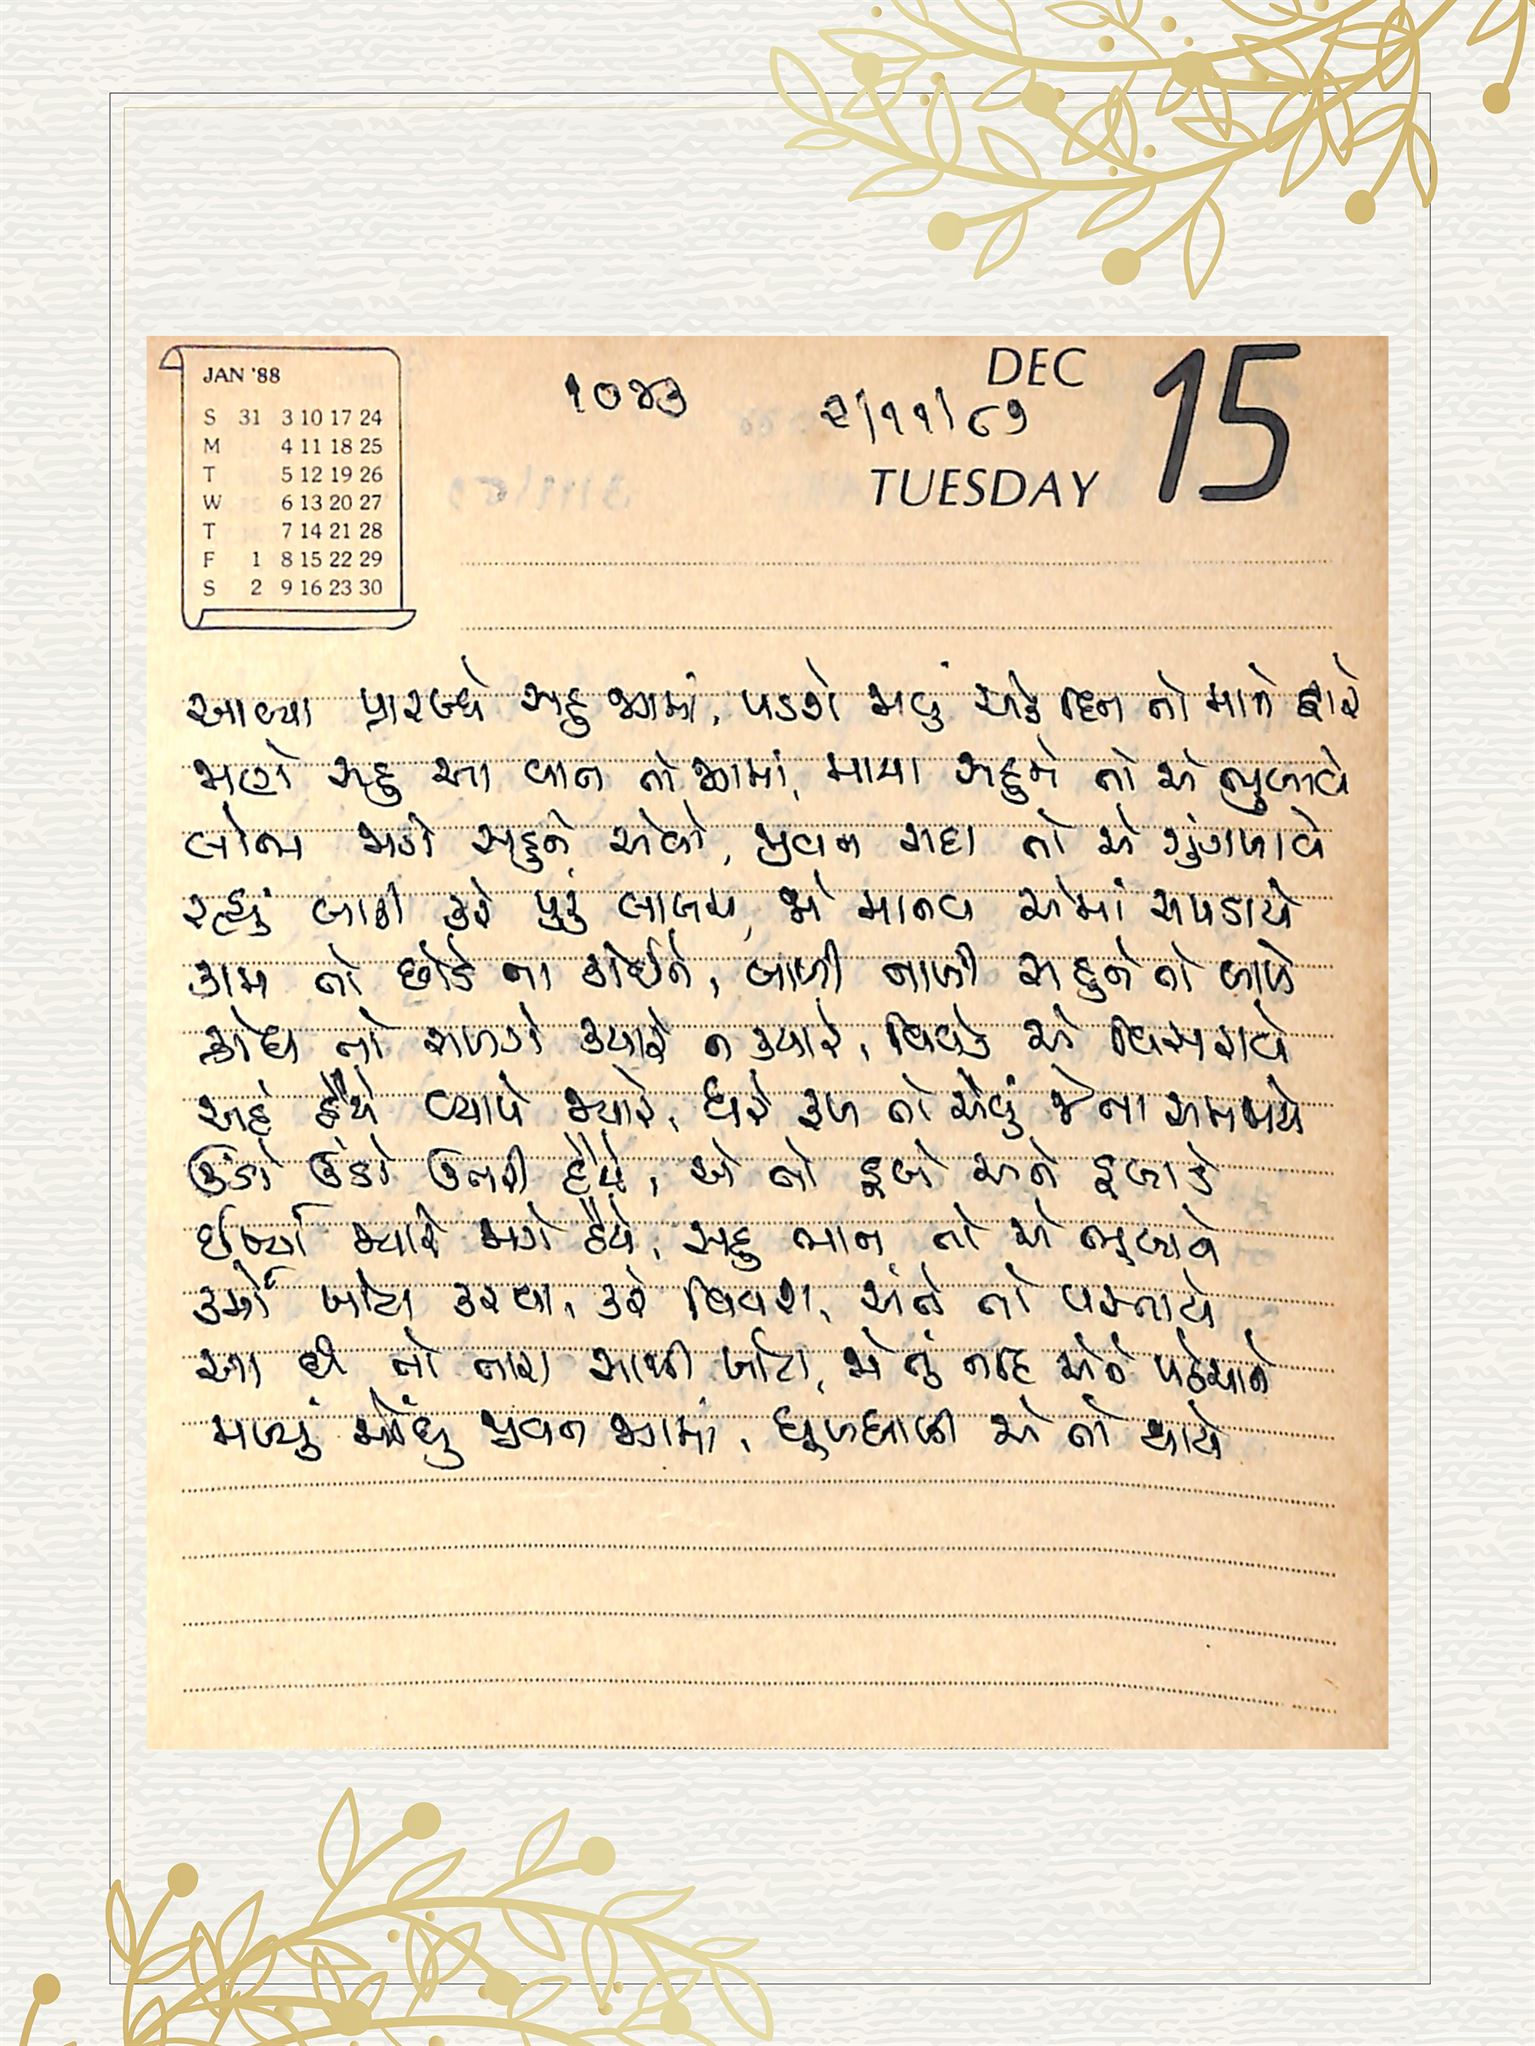 JAN '88
S 31 3 10 17 24
M 4 11 18 25
T 5 12 19 26
W 6 13 20 27
T 7 14 21 28
F 1 8 15 22 29
S 2 9 16 23 30
૧૦૪૩
DEC 15
૨/૧૧/૮૭
TUESDAY
આવ્યા પ્રારબ્ધે સહુ જગમાં, પડશે જાવું એક દિન તો માને દ્વારે
જાણે સહુ આ વાત તો જગમાં, માયા સહુને તો એ ભુલાવે
લોભ જાગે સહુને એવો, જીવન સદા તો એ ગુંગળાવે
રહ્યું બાકી કરે પુરું લાલચ, જો માનવ એમાં સપડાયે
કામ તો છોડે ના કોઈને, બાળી નાખી સહુને તો બાળે
ક્રોધ તો સળગે ક્યારે ન ક્યારે, વિવેક એ વિસરાવે
અહં હૈયે વ્યાપે જ્યારે, ધરે રૂપ તો એવું જે ના સમજાયે
ઉંડો ઉંડો ઉતરી હૈયે, એ તો ડૂબે અને ડૂબાડે
ઈર્ષ્યા જ્યારે જાગે હૈયે, સહુ ભાન તો એ ભૂલાવે
કર્મો ખોટા કરવા, કરે વિવશ, અંતે તો પસ્તાયે
આ છે તો તારા સાથી ખોટા, જો તું નહિ એને પહેચાને
મળ્યું મોંઘું જીવન જગમાં, ધૂળધાણી એ તો થાયે